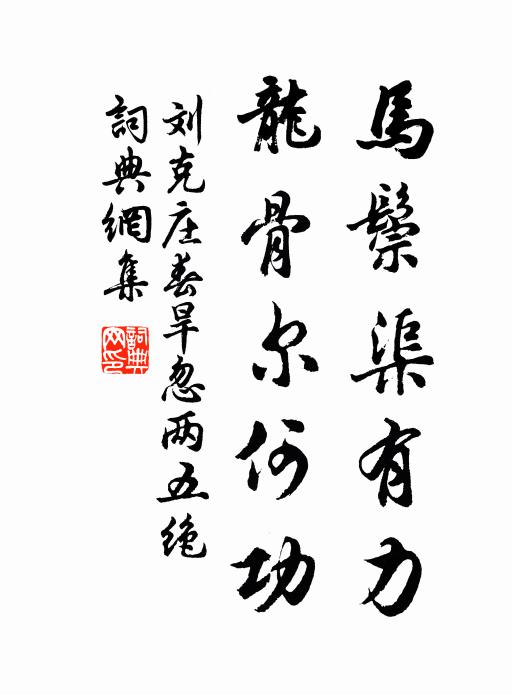 馬鬃渠有力
龍骨尔何功
刘克庄春旱忽两五绝
詞典網集
詞典
网印